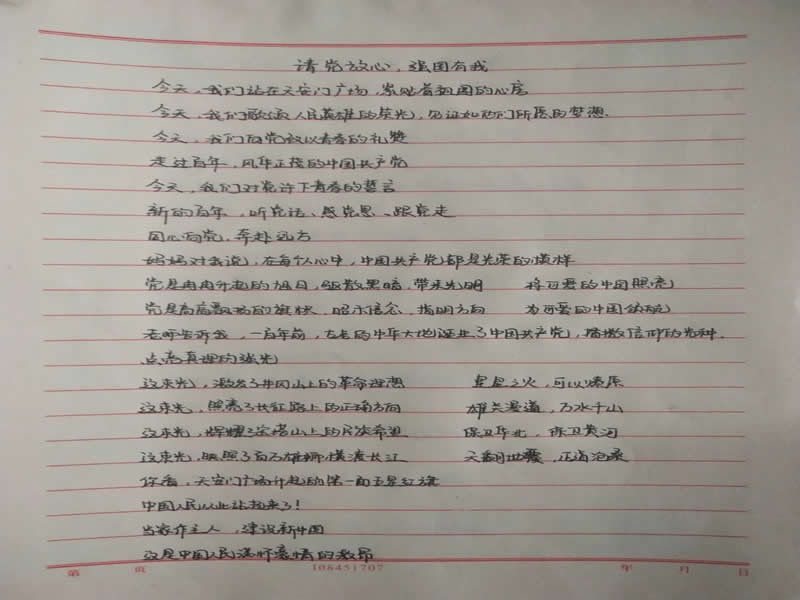 请党放心，强国有我
今天，我们站在天安门广场，紧贴着祖国的心房
今天，我们歌颂人民英雄的荣光，见证如他们所愿的梦想.
今天，我们向党致以青春的礼赞
走过百年，风华正茂的中国共产党
今天，我们对党许下青春的誓言
新的百年，听党话、感党恩、跟党走
同心向党，奔赴远方
妈妈对我说，在每个人心中，中国共产党都是光荣的模样
党是冉冉升起的旭日，驱散黑暗，带来光明 将可爱的中国照亮
党是高高飘扬的旗帜，昭示信念，指明方向 为可爱的中国领航
老师告诉我，一百年前，古老的中华大地诞生了中国共产党，播撒信仰的火种.
点亮真理的强光
这束光，激发了井冈山上的革命理想 星星之火，可以燎原
这束光，照亮了长征路上的正确方向 雄关漫道，万水千山
这束光，辉耀了宝塔山上的民族希望 保卫华北，保卫黄河
这束光，映照了百万雄师横渡长江 天翻地覆，正道沧桑
你看，天安门广场升起的第一面五星红旗
中国人民从此站起来了！
当家作主人，建设新中国
这是中国人民满怀豪情的激昂
第 页 108451707 年 月 日